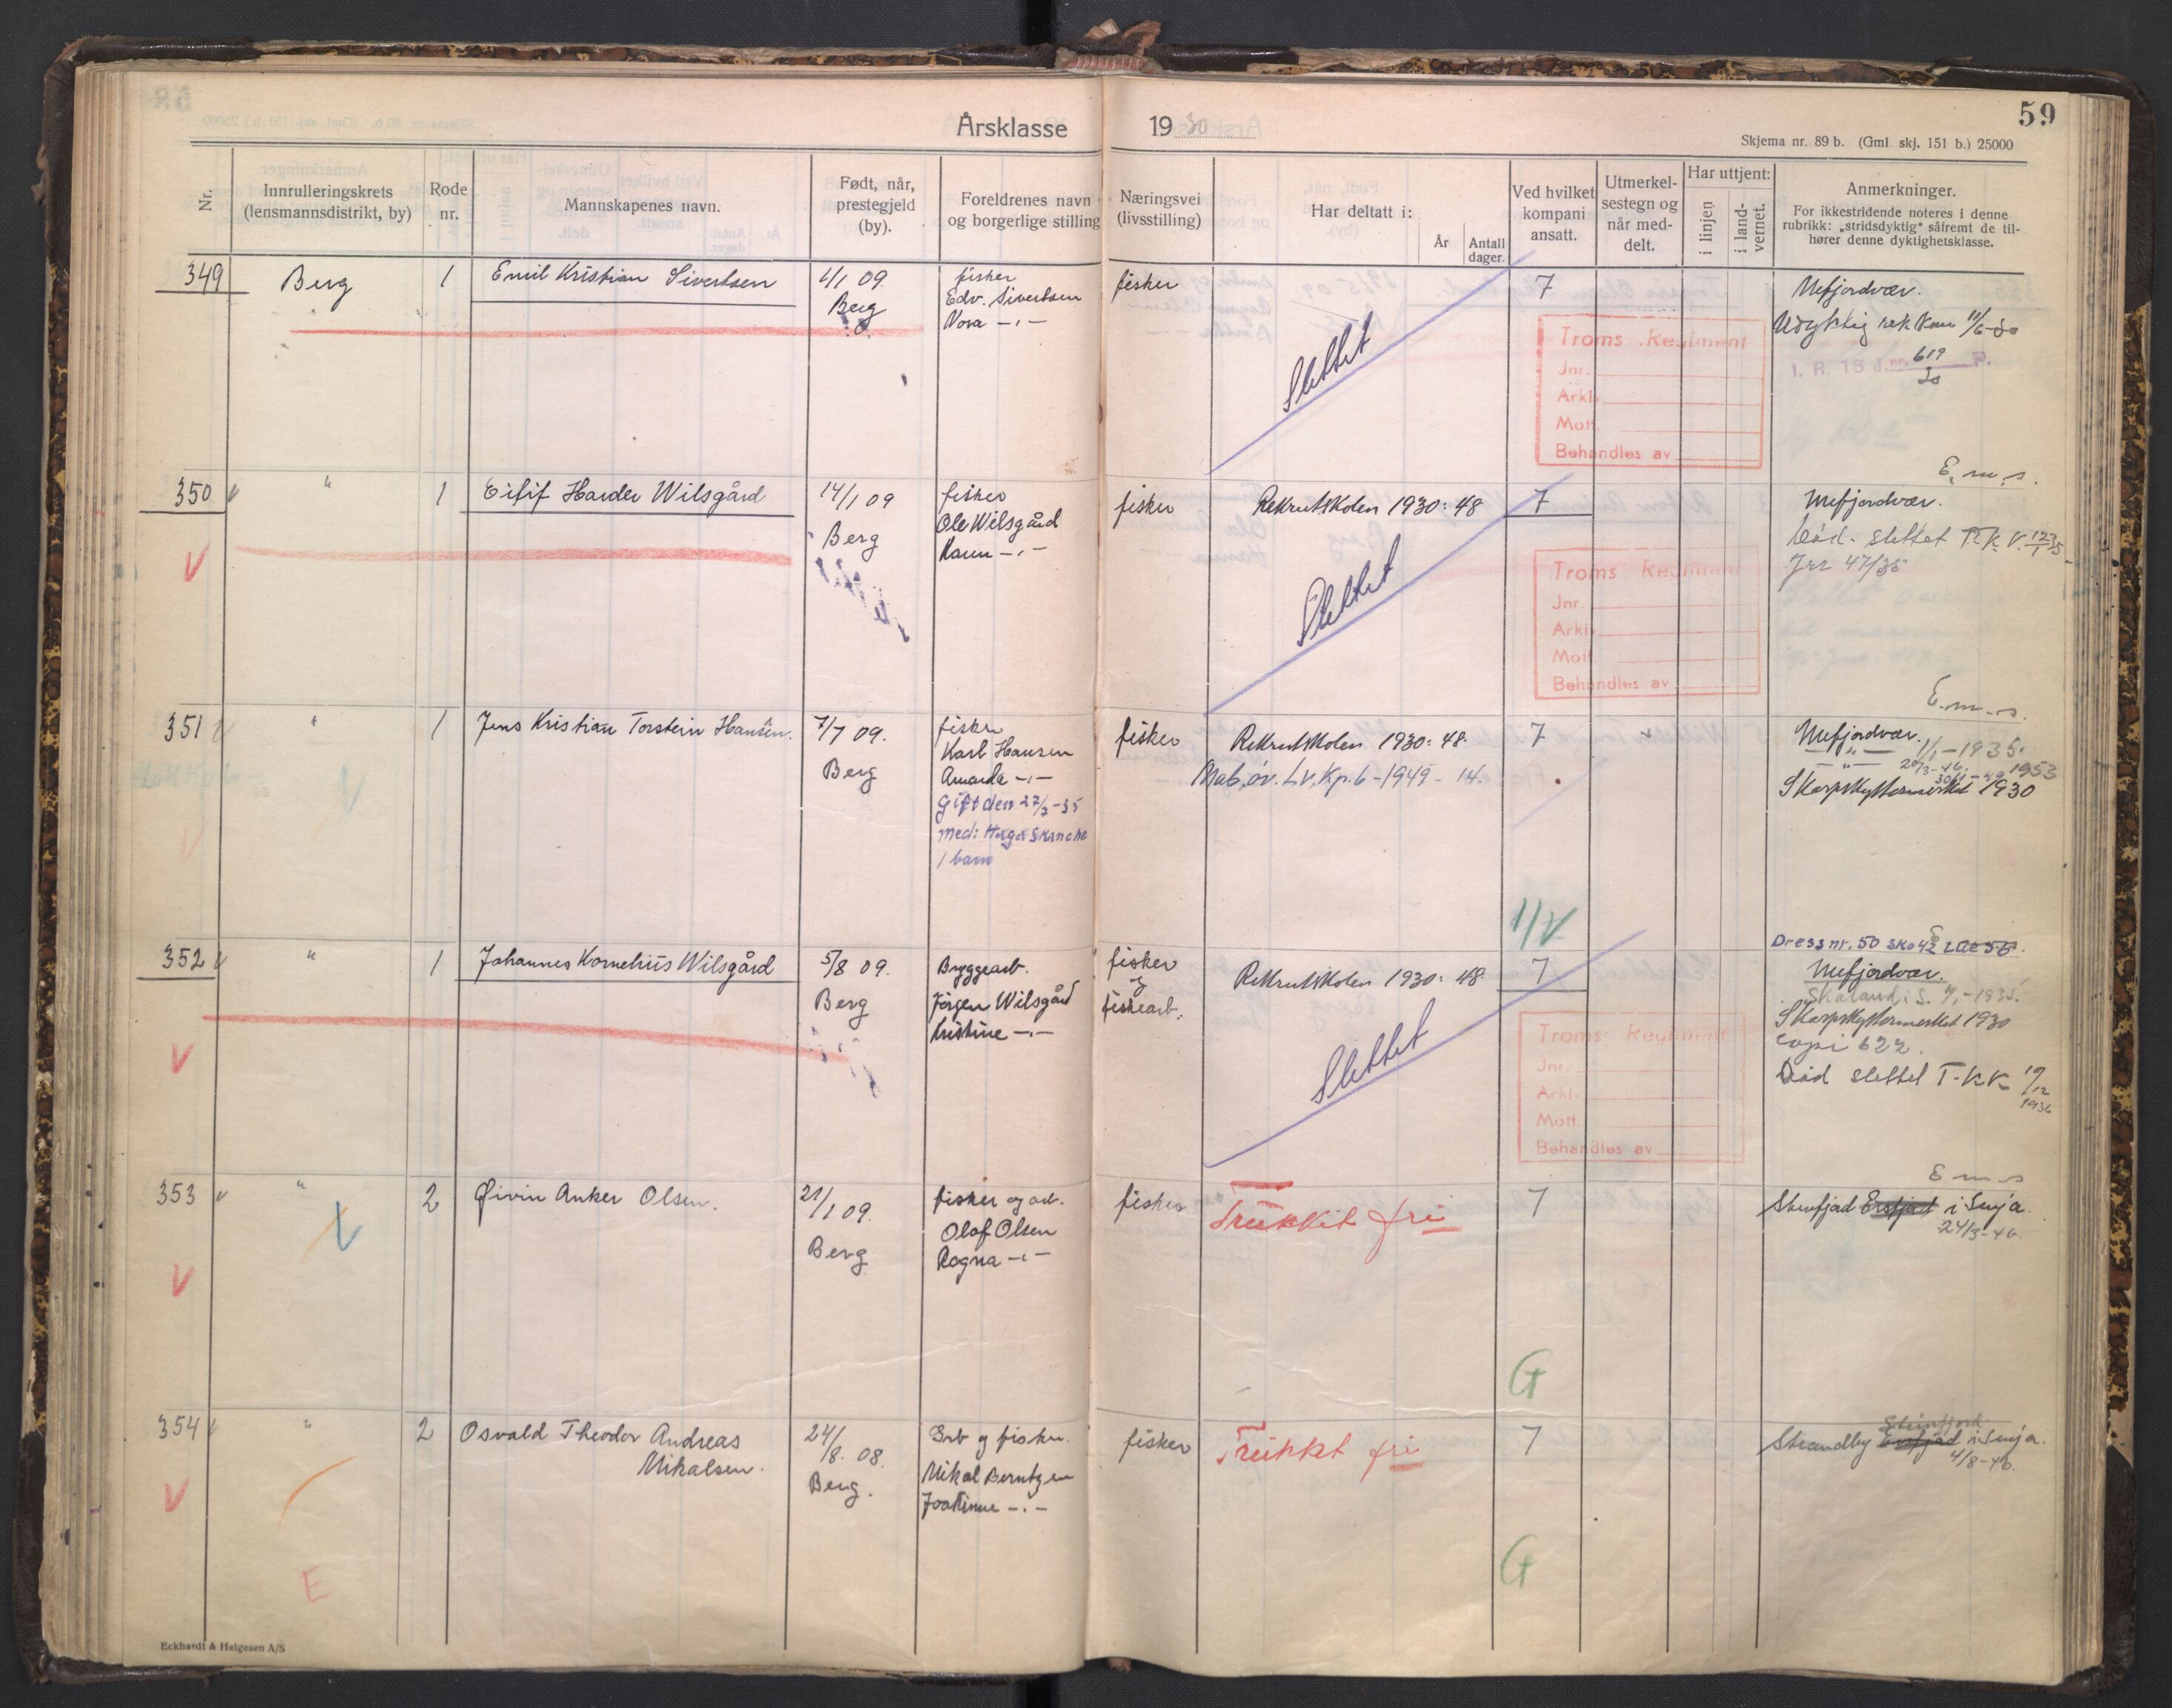 59
Årsklasse 1930
Skjema nr. 89 b. (Gml. skj. 151 b.) 25000
Nr.
Innrulleringskrets
(lensmannsdistrikt, by)
Rode
nr.
Mannskapenes navn.
Født, når,
prestegjeld
(by).
Foreldrenes navn
og borgerlige stilling
Næringsvei
(livsstilling)
Har deltatt i:
År
Antall
dager.
Ved hvilket
kompani
ansatt.
Utmerkel-
sestegn og
når med-
delt.
Har uttjent:
i linjen
i land-
vernet.
Anmerkninger.
For ikkestridende noteres i denne
rubrikk: „stridsdyktig" såfremt de til-
hører denne dyktighetsklasse.
349 Berg 1 Emil Kristian Sivertsen
/1 09.
Berg
fisker
Edv. Sivertsen
Nora -"-
fisker
Slettet
7
Mefjordvær.
Udyktig rek 11/6-30
I. R. 16 J.nr. 619 P.
30
Troms Regiment
Jnr.
Arkiv
Mott.
Behandles av
E.m.s.
350 " 1 Eilif Harder Wilsgård
14/1 09
Berg
fisker
Ole Wilsgård
-"-
fisker
Rekrutskolen 1930: 48
Slettet
7
Mefjordvær.
Død. slettet T.K.V.
Jnr 47/35
Troms Regiment
Jnr.
Arkiv
Mott.
Behandles av
E.m.s.
351 " 1 Jens Kristian Torstein Hansen.
7/7 09.
Berg
fisker
Karl Hansen
Amanda -"-
gift den 27/7-35
med: Hagar Skanche
1 barn
fisker
Rekrutskolen 1930: 48.
Mab.öv. Lv.Kp.6-1949- 14.
7
Mefjordvær.
-"- 1/1-1935.
-"- 20/3-46. 1953
Skarpskyttermerket 1930
1/V
Dress nr. 50 sko 42 Lue 56.
352 " 1 Johannes Kornelius Wilsgård
5/8 09.
Berg
Bryggearb.
Jørgen Wilsgård
Kristine -"-
fisker
og
fiskearb.
Rekrutskolen 1930: 48.
Slettet
7
Mefjordvær.
Skaland i S. -1935.
Skarpskyttermerket 1930
copi 622.
Død slettet T.K.K 19/12
1936
Troms Regiment
Jnr.
Arkiv
Mott.
Behandles av
E m s
353 " 2 Øivin Anker Olsen.
21/1 09.
Berg
fisker og arb.
Olaf Olsen
Ragna -"-
fisker
Trukkit fri
7
Steinfjord Ersfjord i Senja.
24/3-46.
G
354 " 2 Osvald Theodor Andreas
Mikalsen.
24/8. 08.
Berg.
Arb og fisker.
Mikal Berntzen
Joakime -"-
fisker
Trukket fri
7
Steinfjord
Strandby Ersfjord i Senja.
4/8-46.
G
E
Eckhardt & Helgesen A/S